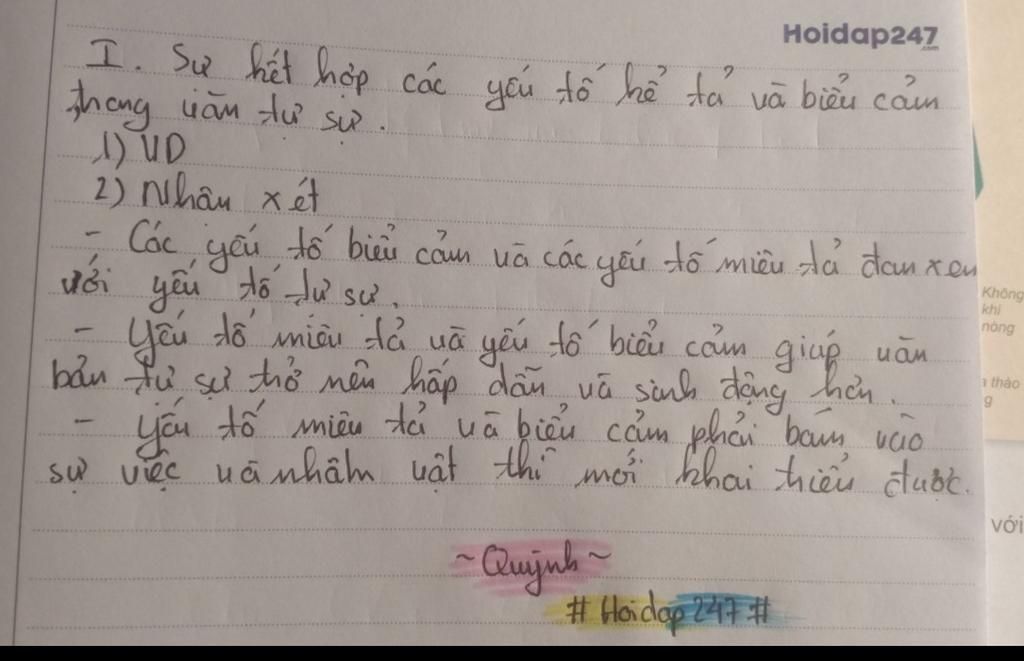 Hoidap247
.com
I. Sự kết hợp các yếu tố kể tả và biểu cảm
trong văn tự sự.
1) VD
2) Nhân xét
- Các yếu tố biểu cảm và các yếu tố miêu tả đan xen
với yếu tố tự sự.
- Yếu tố miêu tả và yếu tố biểu cảm giúp văn
bản tự sự trở nên hấp dẫn và sinh động hơn.
- Yếu tố miêu tả và biểu cảm phải bám vào
sự việc và nhâm vật thì mới khai triển được.
~ Quỳnh ~
# Hoidap247 #
Không
khí
nàng
thảo
g
với